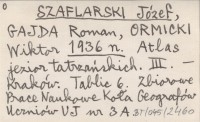 SZAFLARSKI Józef,
GAJDA Roman, ORMICKI
Wiktor 1936 n. Atlas
jezior tatrzańskich. III. —
Kraków. Tablic 6. Zbiorowe
Prace Naukowe Koła Geografów
Uczniów UJ nr 3A